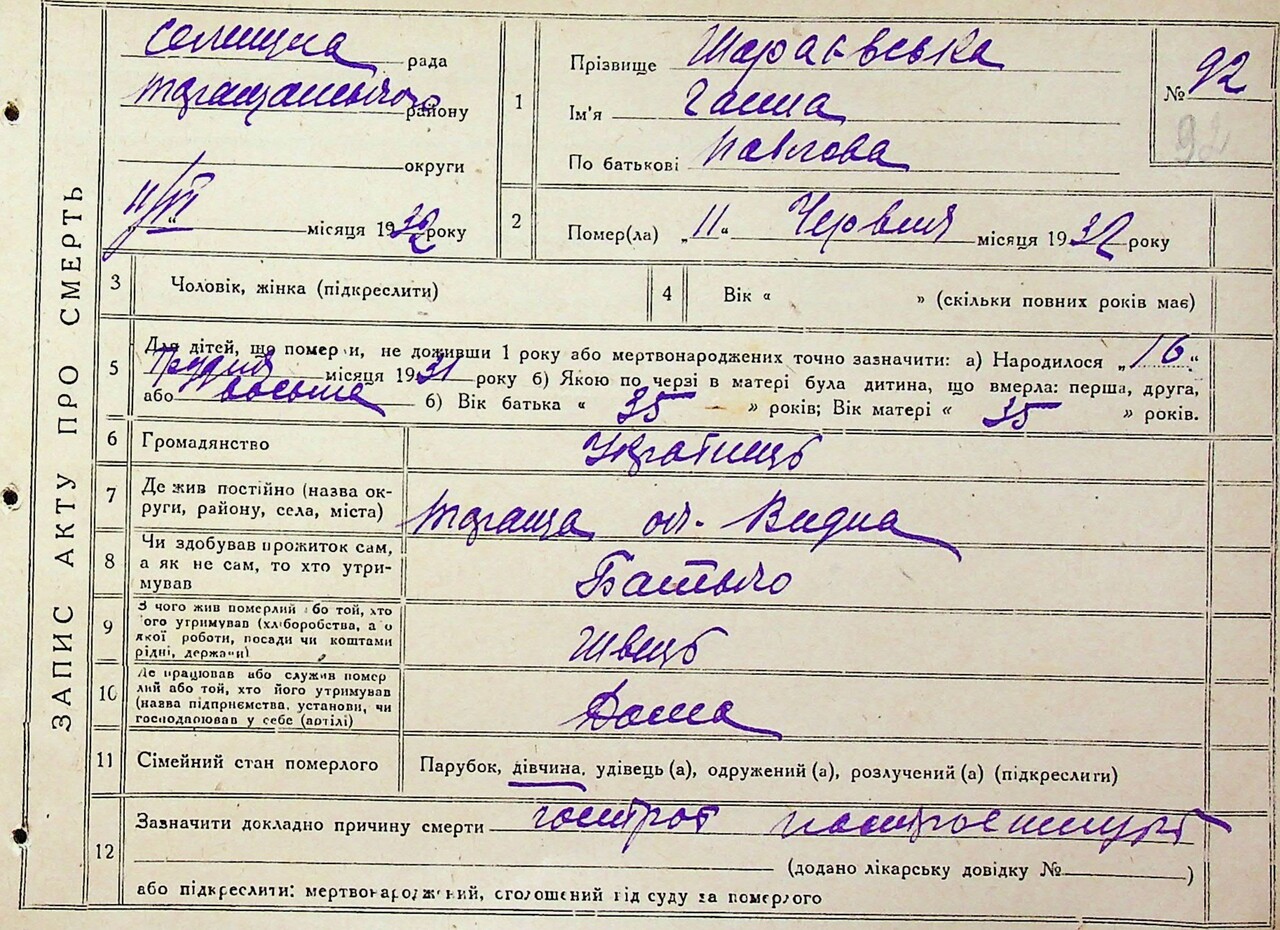 ЗАПИС АКТУ ПРО СМЕРТЬ
Селищна рада
району
округи
11/VI місяця 1932 року
1
Прізвище Шараєвська
Ім'я Ганна
По батькові Павлова
№ 92
92
2
Помер(ла) „11“ Червня місяця 1932 року
3 Чоловік, жінка (підкреслити)
4 Вік « » (скільки повних років має)
5 Для дітей, що померли, не доживши 1 року або мертвонароджених точно зазначити: а) Народилося „16“
Грудня місяця 1931 року б) Якою по черзі в матері була дитина, що вмерла: перша, друга,
або восьма б) Вік батька « 35 » років; Вік матері « 35 » років.
6 Громадянство
7 Де жив постійно (назва округи, району, села, міста) Тараща
8 Чи здобував прожиток сам, а як не сам, то хто утримував Батько
9 З чого жив померлий або той, хто його утримував (хліборобства, а о якої роботи, посади чи коштами рідні, держави) Швець
10 Де працював або служив померлий або той, хто його утримував (назва підприємства, установи, чи господарював у себе (артілі) Дома
11 Сімейний стан померлого Парубок, дівчина, удівець (а), одружений (а), розлучений (а) (підкреслити)
12 Зазначити докладно причину смерти гострой
(додано лікарську довідку № )
або підкреслити: мертвонароджений, оголошений від суду за померлого